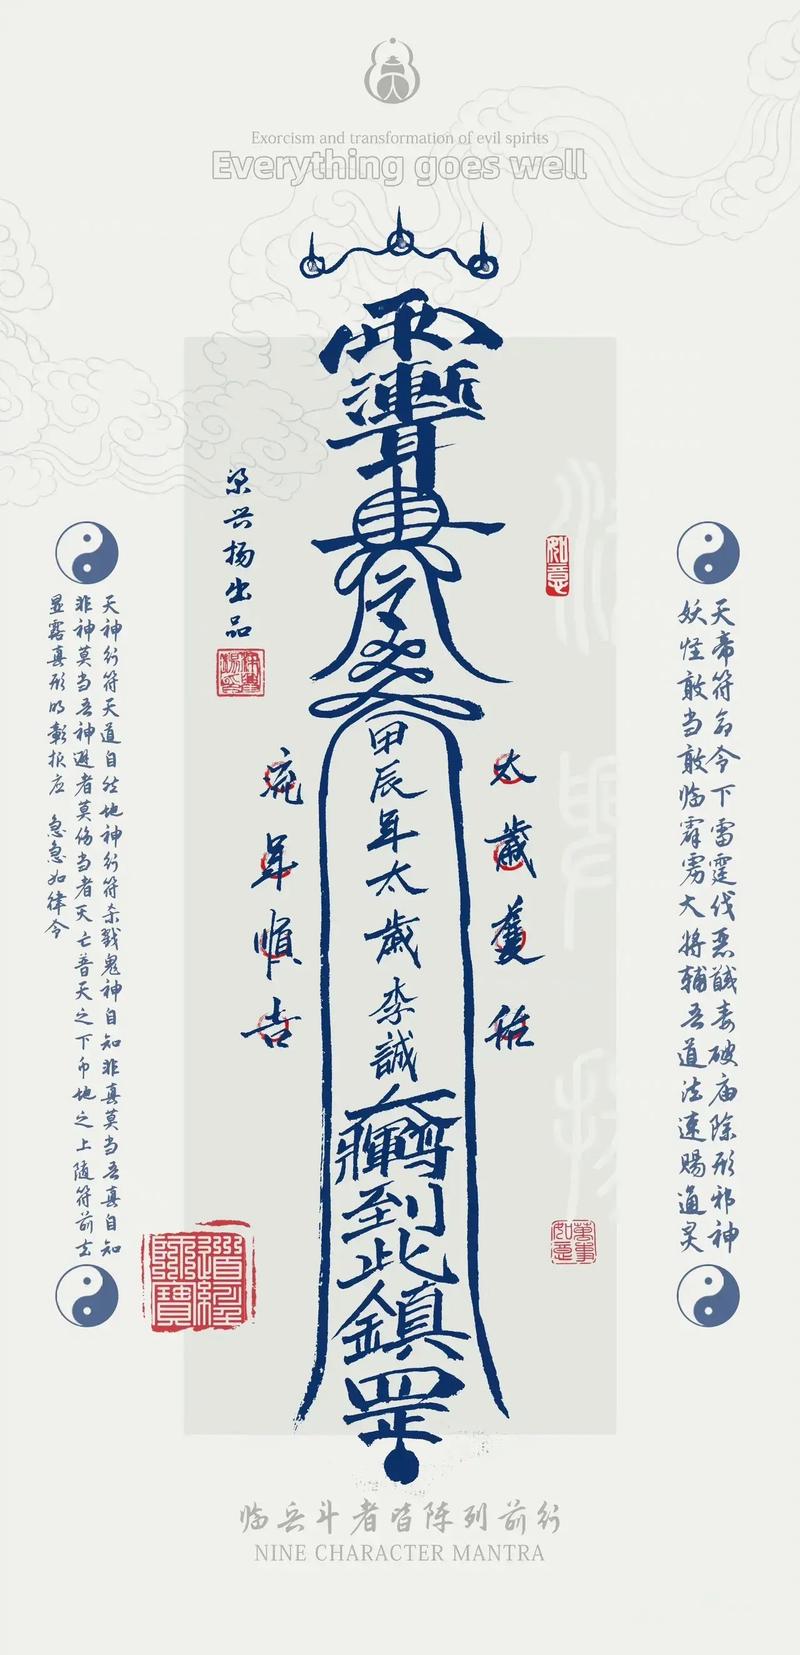 Exorcism and transformation of evil spirits
Everything goes well
令
甲辰年太歲李誠
到此鎮
罡
太歲
流年順吉
梁兴扬出品
如意
萬事如意
天帝符命令下雷霆伐恶馘毒破庙除形邪神
妖怪敢当敢临霹雳大将辅吾道法速赐通灵
天神行符天道自然地神行符杀戮鬼神自知非真莫当吾真自知
非神莫当吾神避者莫伤当者灭亡普天之下币地之上随符前去
显露真形明彰报应 急急如律令
临兵斗者皆陈列前行
NINE CHARACTER MANTRA